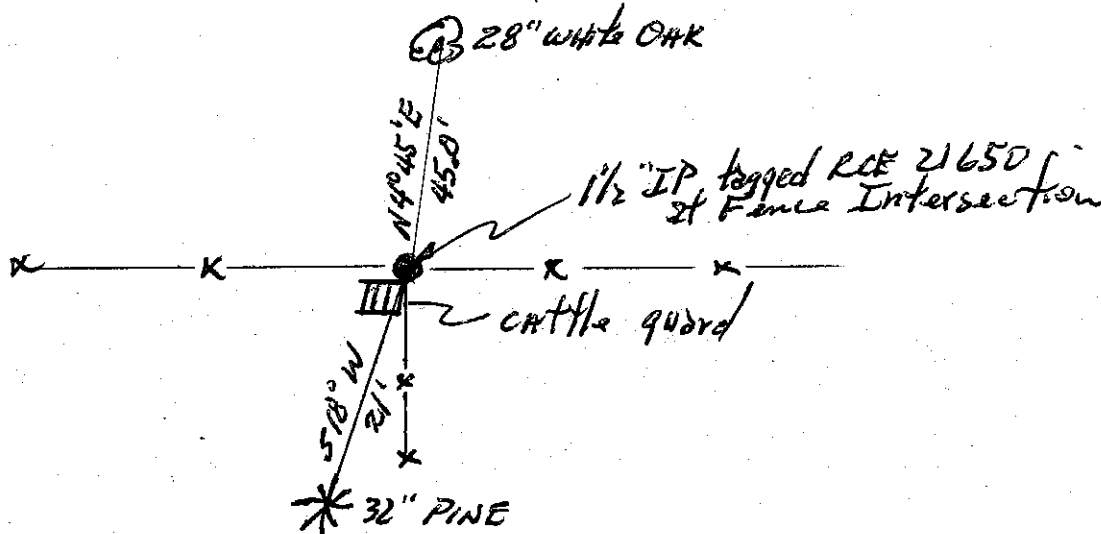 28" White OAK
N4°45'E
45.0'
1½" IP, tagged RCE 21650
at Fence Intersection
x x x x
cattle guard
S18°W
21'
x
x
32" PINE